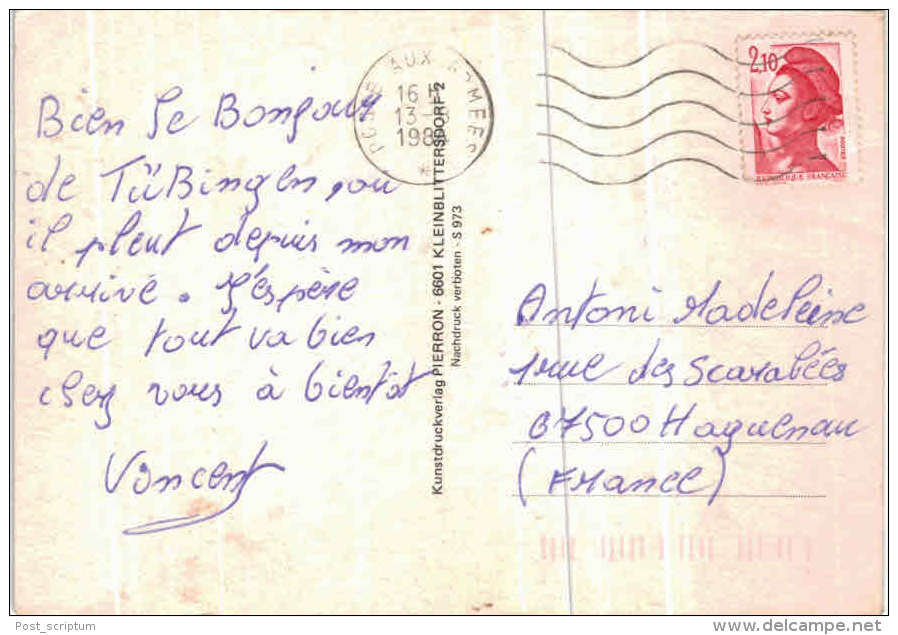 Bien le Bonjour
de TüBingen, ou
il pleut depuis mon
arrivé. J'espère
que tout va bien
chez vous à bientôt
Vincent
POSTE AUX ARMEES
16 H
13-
198
Kunstdruckverlag PIERRON - 6601 KLEINBLITTERSDORF-2
Nachdruck verboten - S 973
2,10
POSTES
REPUBLIQUE FRANÇAISE
Antoni Madeleine
1 rue des Scarabées
67500 Haguenau
(FRANCE)
Post_scriptum
www.delcampe.net